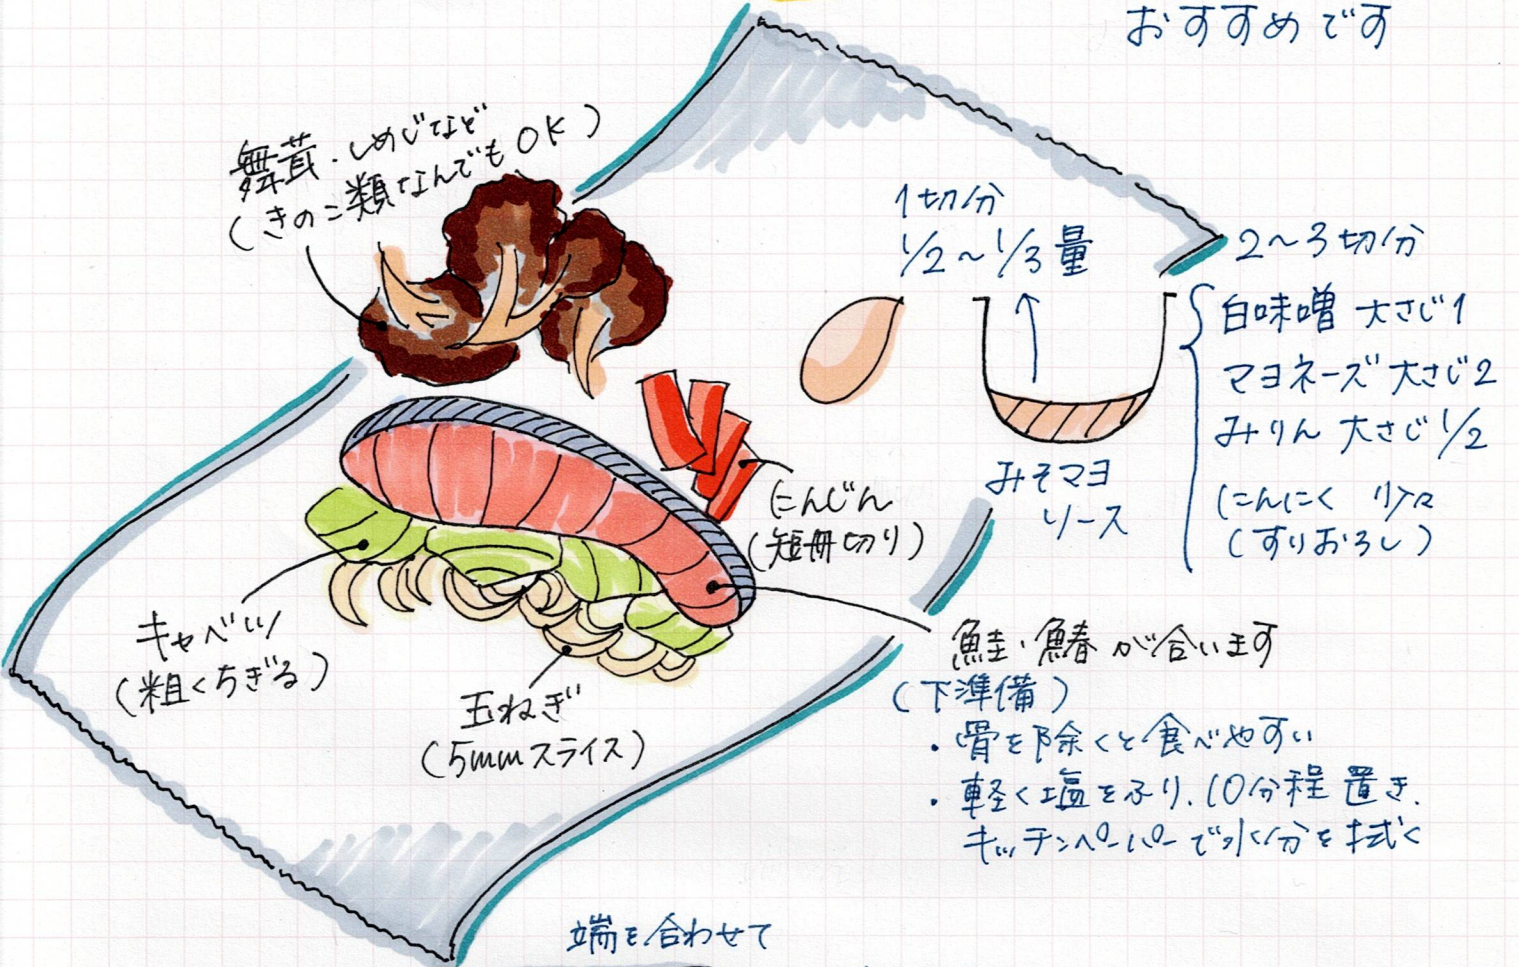 おすすめです
舞茸・しめじなど
(きのこ類なんでもOK)
1切分
1/2〜1/3量
2〜3切分
白味噌 大さじ1
マヨネーズ 大さじ2
みりん 大さじ1/2
にんにく 少々
(すりおろし)
みそマヨ
ソース
にんじん
(短冊切り)
キャベツ
(粗くちぎる)
玉ねぎ
(5mmスライス)
鮭・鰆が合います
(下準備)
・骨を除くと食べやすい
・軽く塩をふり、10分程置き、
キッチンペーパーで水分を拭く
端を合わせて